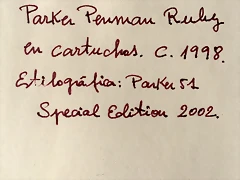 Parker Penman Ruby
en cartuchos. C. 1998.
Estilográfica: Parker 51
Special Edition 2002.